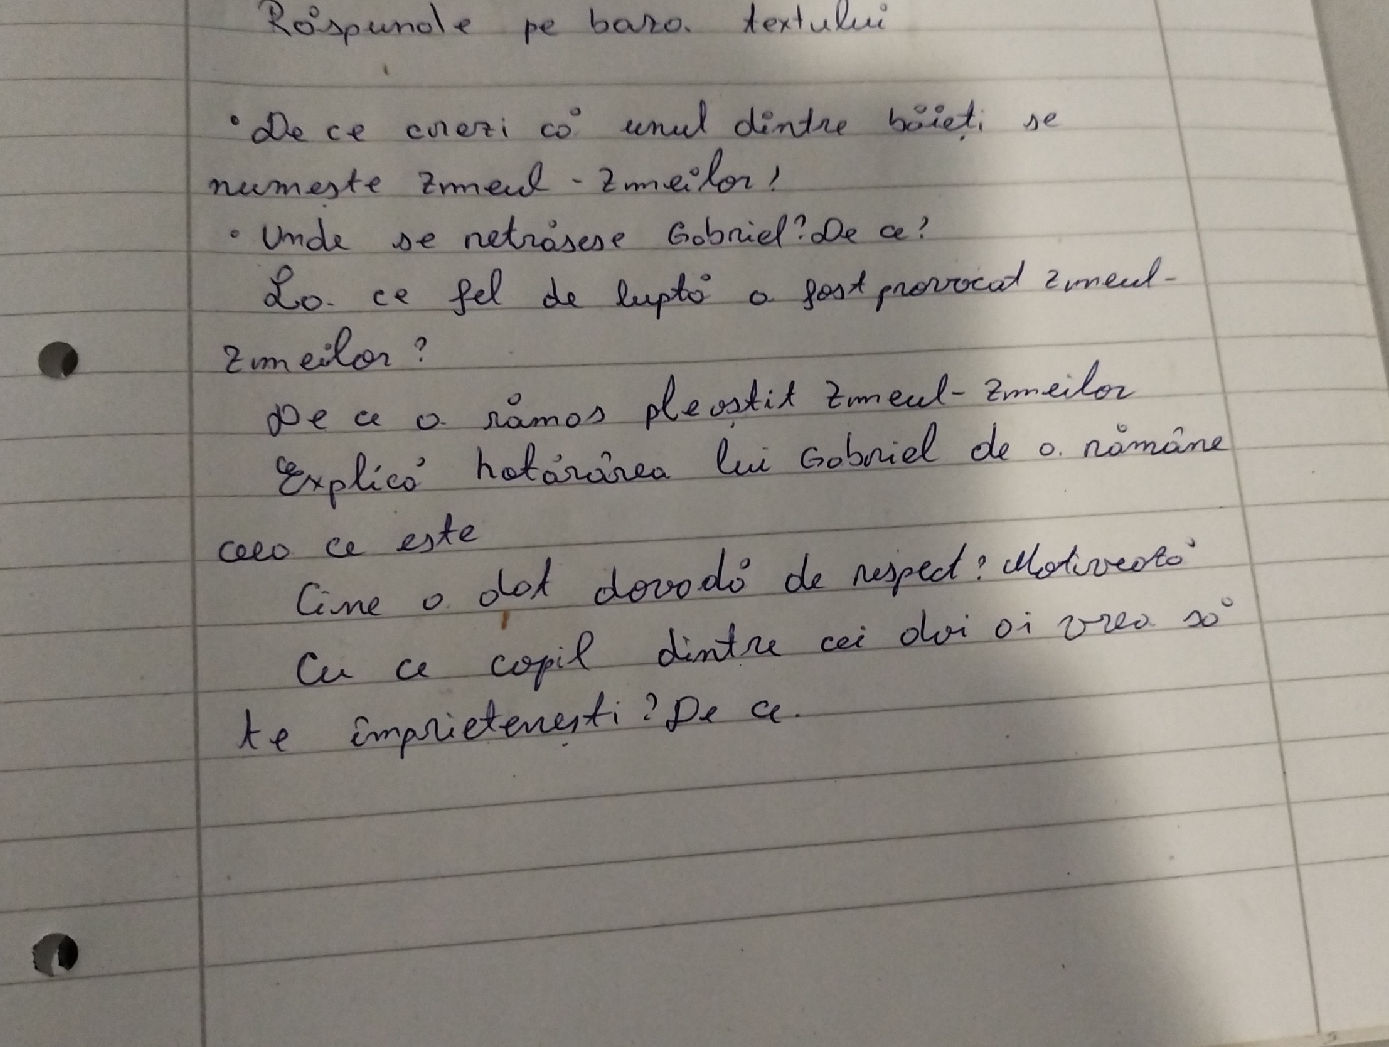 Răspunde pe baza textului
• De ce crezi că unul dintre băieți se
numește Zmeul - Zmeilor?
• Unde se retrăsese Gabriel? De ce?
La ce fel de luptă a fost provocat zmeul-
zmeilor?
De ce a rămas pleoștit zmeul-zmeilor
Explică hotărârea lui Gabriel de a rămâne
ceea ce este
Cine a dat dovadă de respect? Motivează
Cu ce copil dintre cei doi ai vrea să
te împrietenești? De ce.